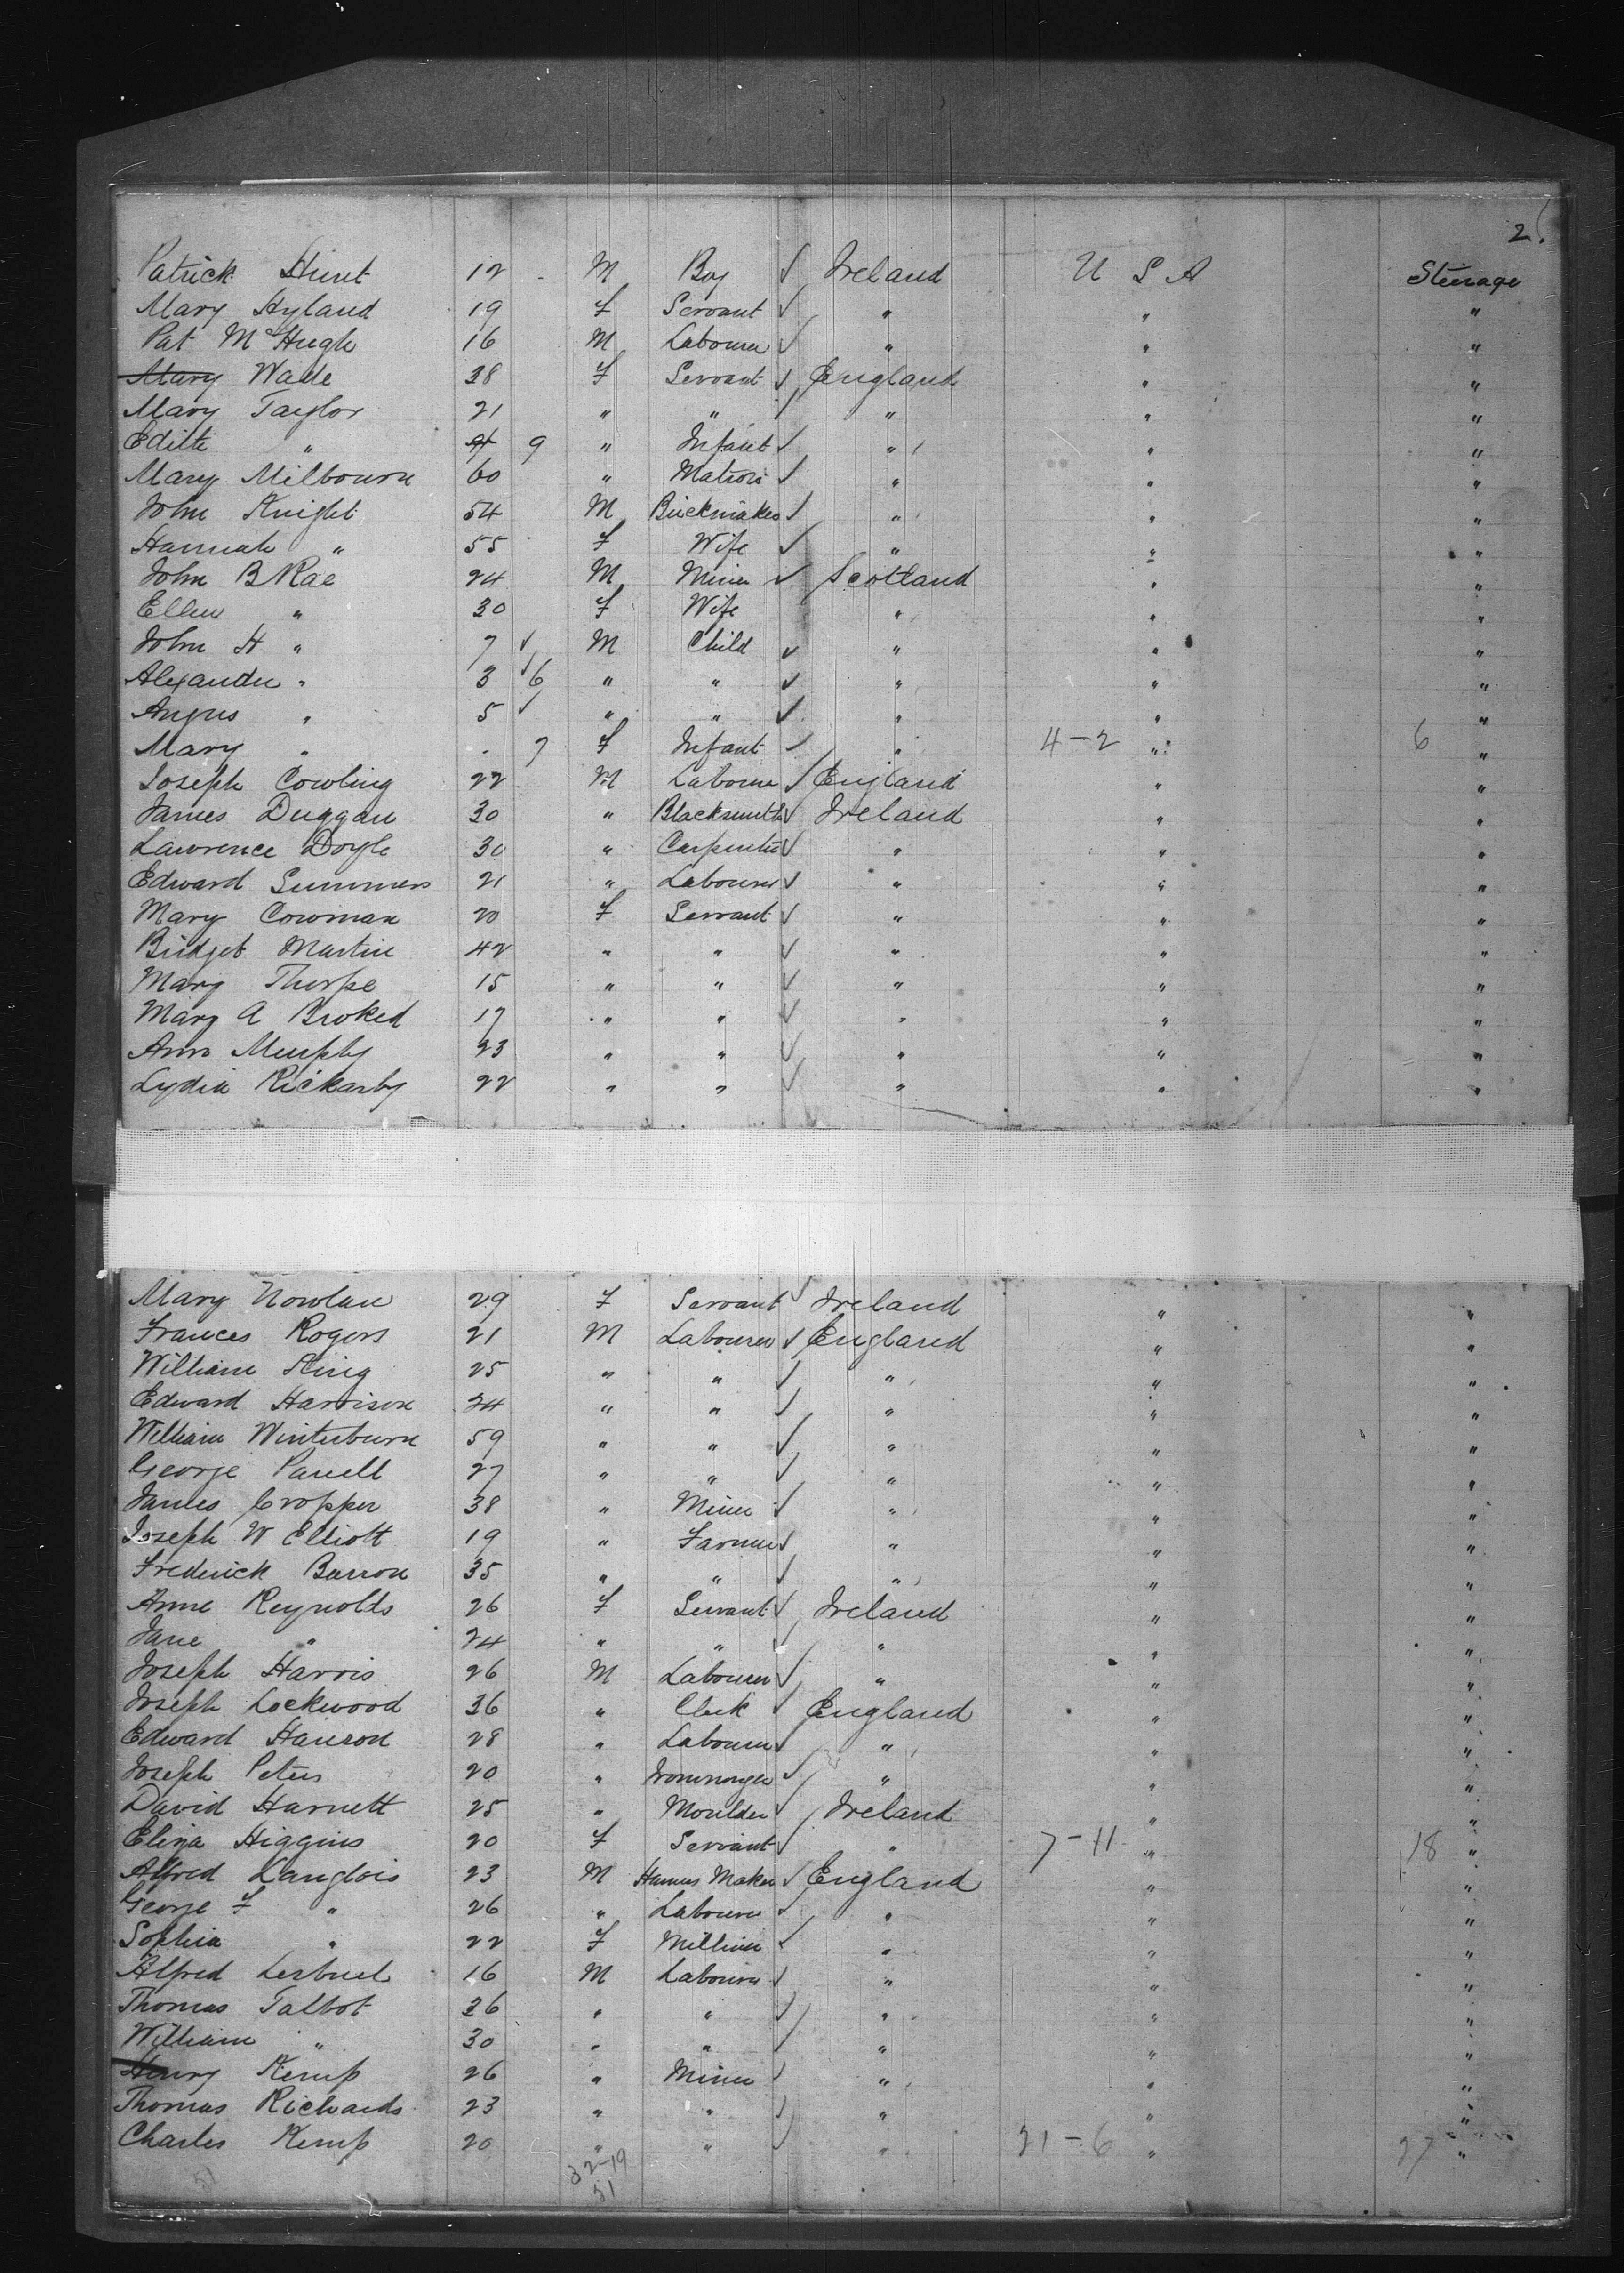 2.
Patrick Hunt 12 M Boy ✓ Ireland U S A Steerage
Mary Hyland 19 F Servant ✓ " " "
Pat McHugh 16 M Labourer ✓ " " "
Mary Wade 38 F Servant ✓ England " "
Mary Taylor 21 " " ✓ " " "
Edith " 4 9 " Infant ✓ " " "
Mary Milbourn 60 " Matron ✓ " " "
John Knight 54 M Brickmaker ✓ " " "
Hannah " 55 F Wife ✓ " " "
John B Rae 24 M Miner ✓ Scotland " "
Ellen " 30 F Wife " " "
John H " 7 ✓ M Child ✓ " " "
Alexander " 3 ✓ 6 " " ✓ " " "
Angus " 5 ✓ " " ✓ " " "
Mary " . 7 F Infant ✓ " 4-2 " 6 "
Joseph Cowling 22 M Labourer ✓ England " "
James Duggan 30 " Blacksmith ✓ Ireland " "
Lawrence Doyle 30 " Carpenter ✓ " " "
Edward Summers 21 " Labourer ✓ " " "
Mary Cowman 20 F Servant ✓ " " "
Bridget Martin 42 " " ✓ " " "
Mary Thorpe 15 " " ✓ " " "
Mary A Broked 17 " " ✓ " " "
Ann Murphy 23 " " ✓ " " "
Lydia Rickarby 22 " " ✓ " " "
Mary Nowlan 29 F Servant ✓ Ireland " "
Frances Rogers 21 M Labourer ✓ England " "
William King 25 " " ✓ " " "
Edward Harrison 24 " " ✓ " " "
William Winterburn 59 " " ✓ " " "
George 27 " " ✓ " " "
James Cropper 38 " Miner ✓ " " "
Joseph W Elliott 19 " Farmer ✓ " " "
Frederick Barron 35 " " ✓ " " "
Anne Reynolds 26 F Servant ✓ Ireland " "
Jane " 24 " " ✓ " " "
Joseph Harris 26 M Labourer ✓ " " "
Joseph Lockwood 36 " Clerk ✓ England " "
Edward Hanson 28 " Labourer ✓ " " "
Joseph Peters 20 " Ironmonger ✓ " " "
David Harnett 25 " Moulder ✓ Ireland " "
Eliza Higgins 20 F Servant ✓ " 7-11 " 18 "
Alfred Langlois 23 M Harness Maker ✓ England " "
George F " 26 " Labourer ✓ " " "
Sophia " 22 F Milliner ✓ " " "
Alfred 16 M Labourer ✓ " " "
Thomas Talbot 26 " " ✓ " " "
William " 30 " " ✓ " " "
Henry Kemp 26 " Miner ✓ " " "
Thomas Richards 23 " " ✓ " " "
Charles Kemp 20 " " ✓ " 21-6 " 27 "
51 32-19
51